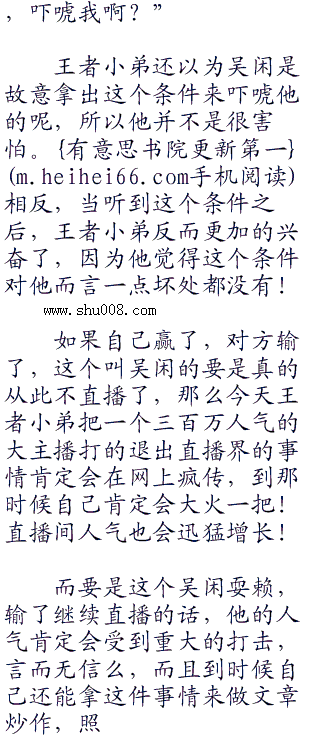 ，吓唬我啊？”
王者小弟还以为吴闲是
故意拿出这个条件来吓唬他
的呢，所以他并不是很害
怕。{有意思书院更新第一}
(m.heihei66.com手机阅读)
相反，当听到这个条件之
后，王者小弟反而更加的兴
奋了，因为他觉得这个条件
对他而言一点坏处都没有！
www.shu008.com
如果自己赢了，对方输
了，这个叫吴闲的要是真的
从此不直播了，那么今天王
者小弟把一个三百万人气的
大主播打的退出直播界的事
情肯定会在网上疯传，到那
时候自己肯定会大火一把！
直播间人气也会迅猛增长！
而要是这个吴闲耍赖，
输了继续直播的话，他的人
气肯定会受到重大的打击，
言而无信么，而且到时候自
己还能拿这件事情来做文章
炒作，照